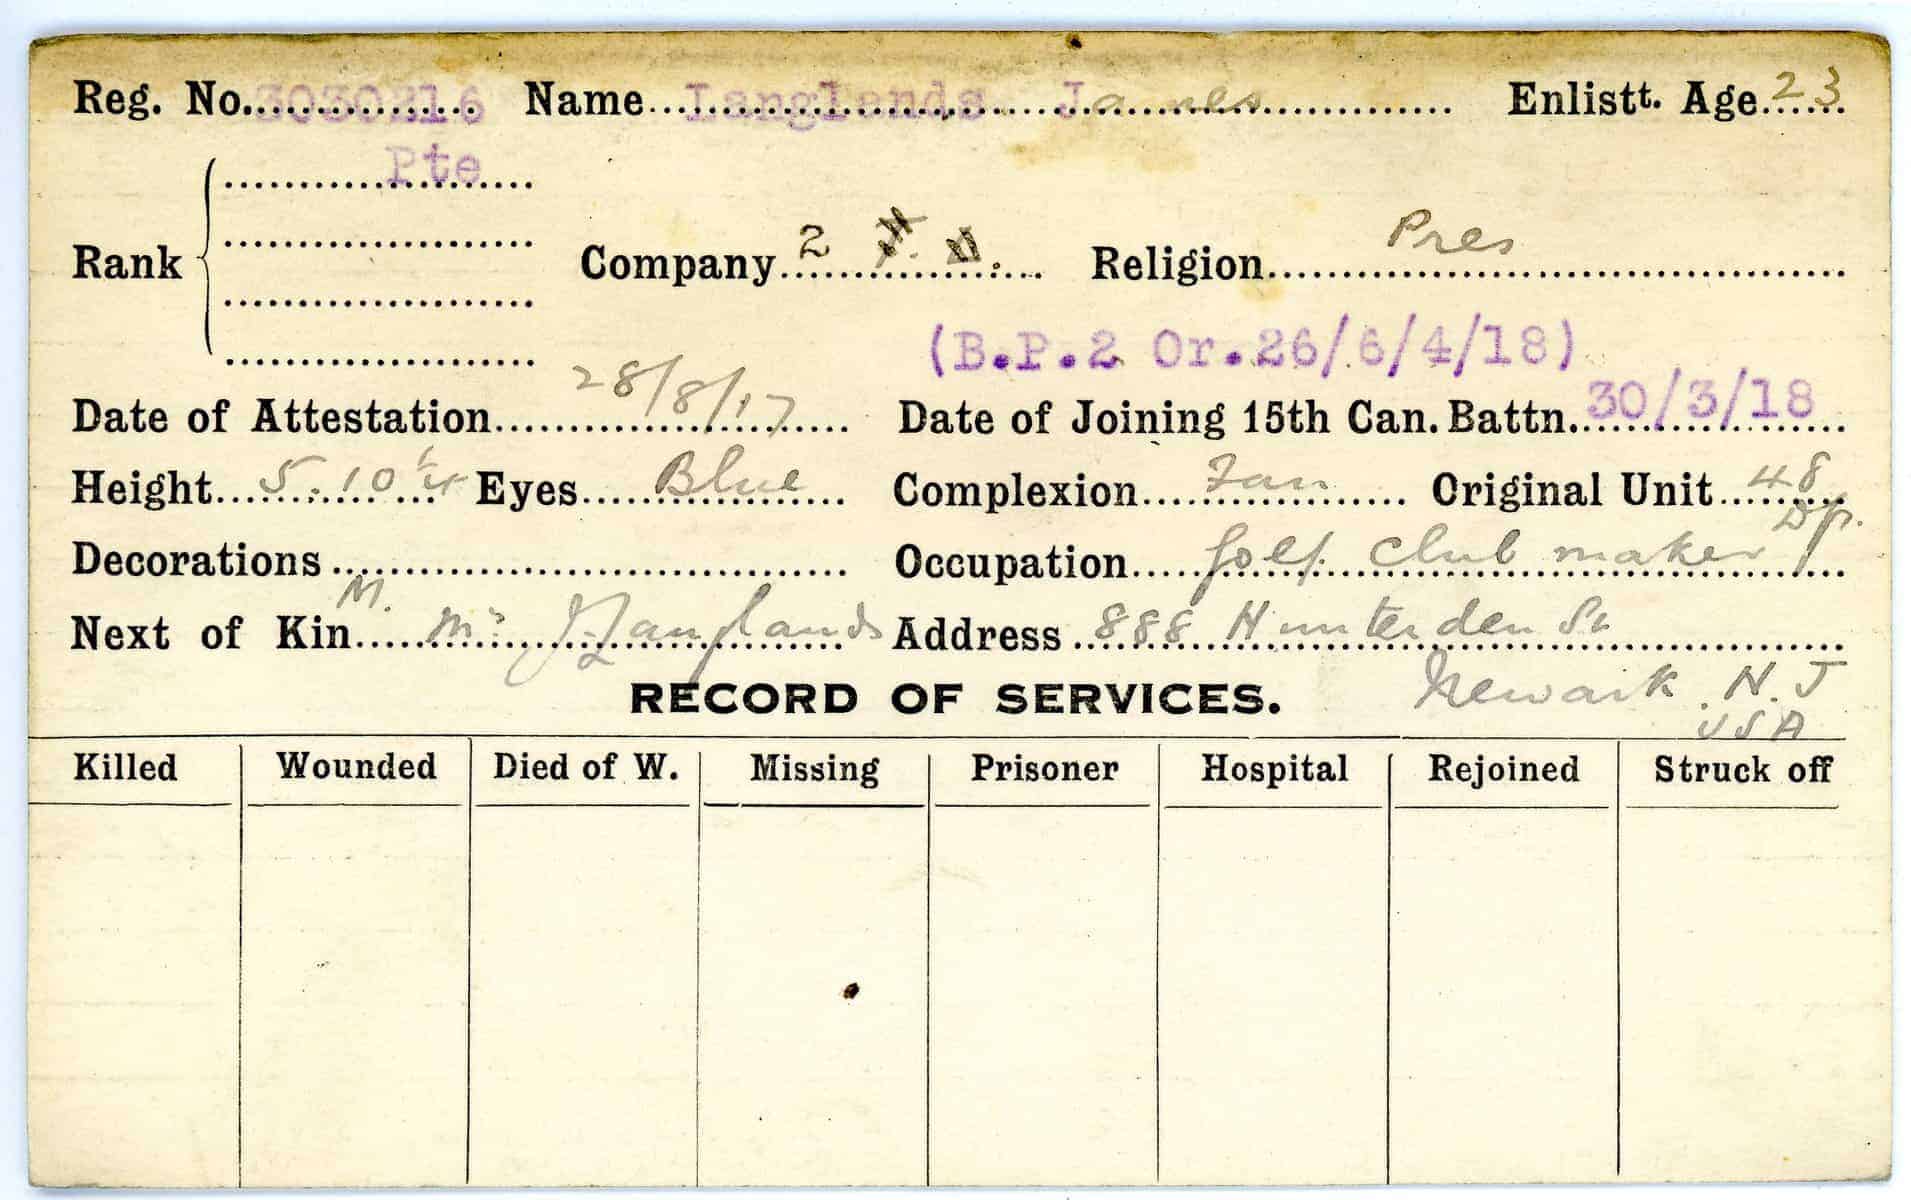 Reg. No. 3030216 Name Langlands James Enlistt. Age 23
Pte
Rank Company 2 Religion Pres
(B.P.2 Or.26/6/4/18)
Date of Attestation 28/8/17 Date of Joining 15th Can. Battn. 30/3/18
Height 5.10 1/4 Eyes Blue Complexion Fair Original Unit 48
Decorations Occupation Golf Club maker
M.
Next of Kin J Langlands Address 888 Hunterden St
Newark N.J
USA
RECORD OF SERVICES.
Killed Wounded Died of W. Missing Prisoner Hospital Rejoined Struck off